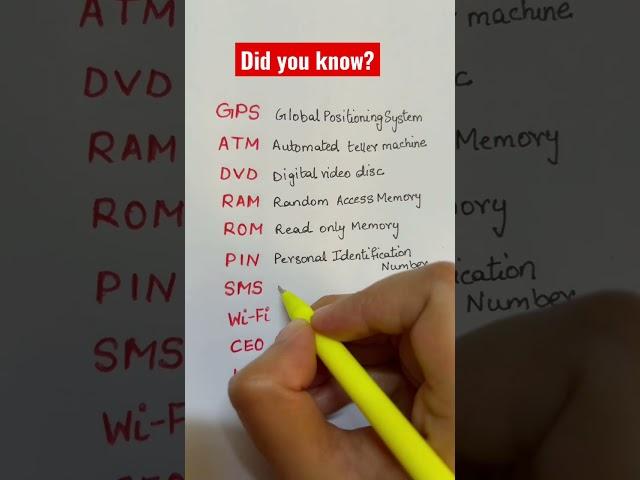 Did you know?
GPS Global Positioning System
ATM Automated teller machine
DVD Digital video disc
RAM Random Access Memory
ROM Read only Memory
PIN Personal Identification
Number
SMS
Wi-Fi
CEO
machine
DVD
RAM Memory
ROM
PIN
Number
SMS